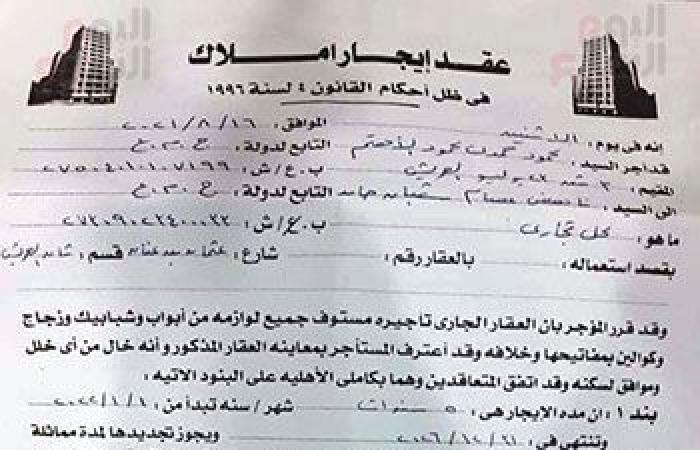 عقد إيجار املاك
فى ظل أحكام القانون ٤ لسنة ١٩٩٦
إنه فى يوم : الاثنين الموافق : ١٦ / ٨ / ٢٠٢١
قد اجر السيد : محمود محمود التابع لدولة : ج.م.ع
المقيم : ٣ ش ٢٣ يوليو ب.ع/ش :
الى السيد : عصام شعبان حامد التابع لدولة : ج.م.ع
ما هو : محل تجارى ب.ع/ش :
بقصد استعماله : بالعقار رقم : شارع : عثمان قسم :
وقد قرر المؤجر بان العقار الجارى تأجيره مستوف جميع لوازمه من أبواب وشبابيك وزجاج
وكوالين بمفاتيحها وخلافه وقد أعترف المستأجر بمعاينه العقار المذكور و أنه خال من أى خلل
وموافق لسكنه وقد اتفق المتعاقدين وهما بكاملى الأهليه على البنود الاتيه :
بند ١ : ان مده الايجار هى : ٥ سنوات شهر / سنه تبدأ من : ١ / ١ / ٢٠٢٢
وتنتهى فى : ٣١ / ١٢ / ٢٠٢٦ ويجوز تجديدها لمدة مماثلة